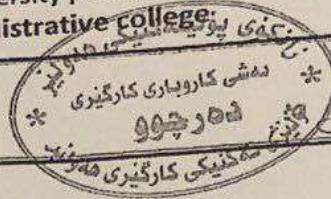 istrative college.
زانكۆی پۆلیتەکنیکی هەولێر
بەشی كاروباری كارگێری
دەرچوو
کۆلێژی تەکنیکی کارگێری هەولێر